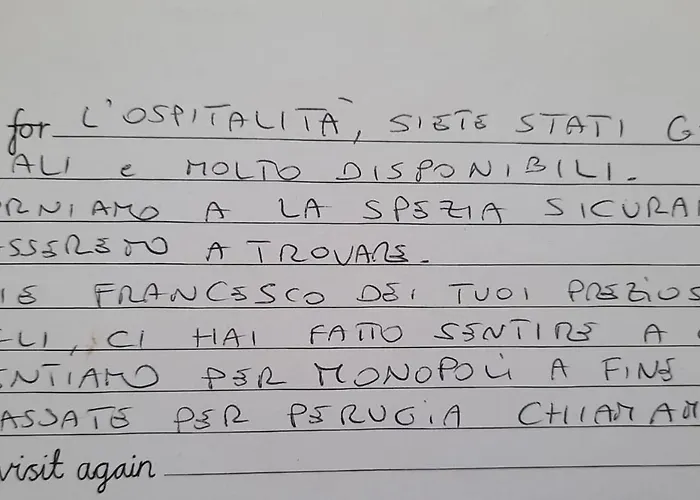 for L'OSPITALITÀ, SIETE STATI G
ALI e MOLTO DISPONIBILI.
RNIAMO A LA SPEZIA SICURA
SSEREMO A TROVARE.
IE FRANCESCO DEI TUOI PREZIOS
LI, CI HAI FATTO SENTIRE A
NTIAMO PER MONOPOLI A FINE
ASSATE PER PERUGIA CHIAMA
visit again